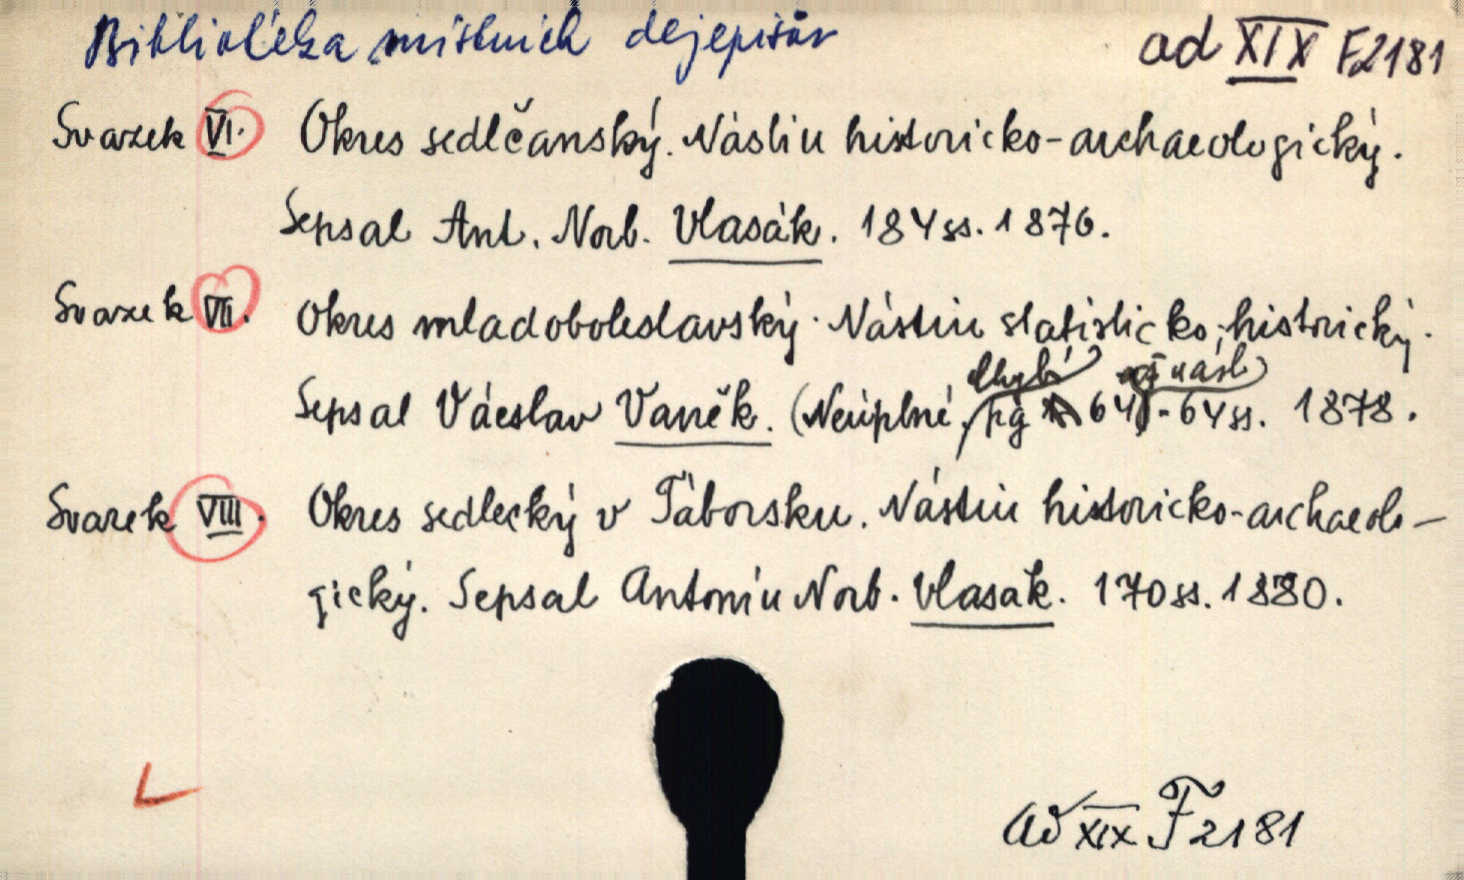 Bibliotéka místních dejepisův ad XIX F2181
Svazek VI. Okres sedlčanský. Nástin historicko-archaeologický.
Sepsal Ant. Norb. Vlasák. 184 ss. 1876.
Svazek VII. Okres mladoboleslavský. Nástin statisticko-historický.
chybí násl
Sepsal Václav Vaněk. (Neúplné, pg 64)-64 ss. 1878.
Svazek VIII. Okres sedlecký v Táborsku. Nástin historicko-archaeolo-
gický. Sepsal Antonín Norb. Vlasák. 170 ss. 1880.
ad XIX F 2181